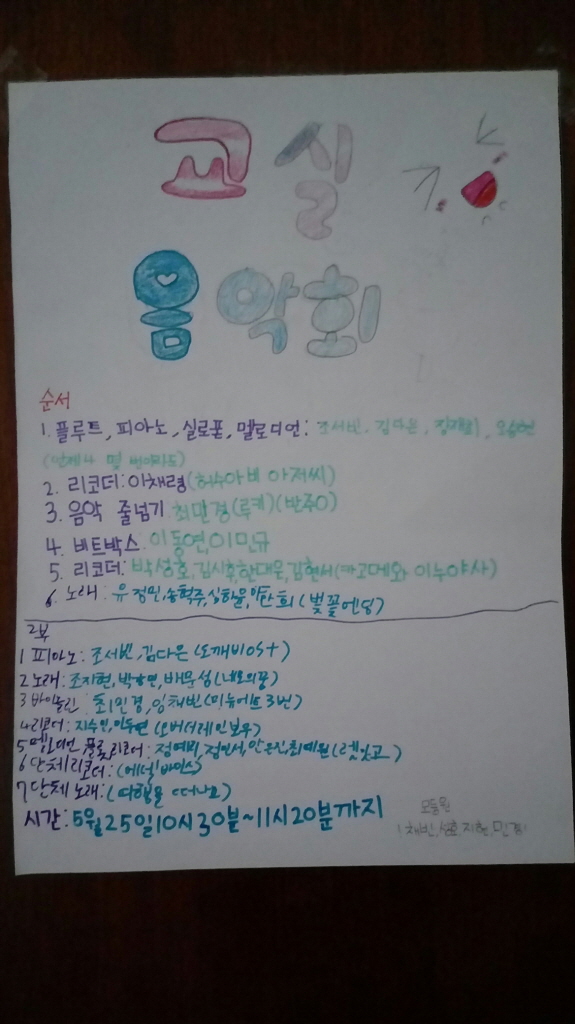 교실
음악회
순서
1. 플루트, 피아노, 실로폰, 멜로디언: 조서빈, 김다은,
(언제나 몇 번이라도)
2. 리코더: 이채령(허수아비 아저씨)
3. 음악 줄넘기: 최민경(루키)(반주O)
4. 비트박스: 이동연, 이민규
5. 리코더: 박성호, 김시후, 한대운, 김현서(카고메와 이누야샤)
6. 노래: 유정민, 송혁주, 심하윤, (벚꽃엔딩)
2부
1 피아노: 조서빈, 김다은 (도깨비OST)
2 노래: 조지현, 배문성(네모의꿈)
3 바이올린: 최민경, 임채빈(미뉴에트 3번)
4 리코더: 지수민, 이동연 (오버더레인보우)
5 멜로디언, 플룻, 리코더: 정예림, 정민석, 안은진, 최예원(렛잇고)
6 단체 리코더: (에델바이스)
7 단체 노래: (여행을 떠나요)
시간: 5월25일10시30분~11시20분까지
모둠원
채빈, 성호, 지현, 민경